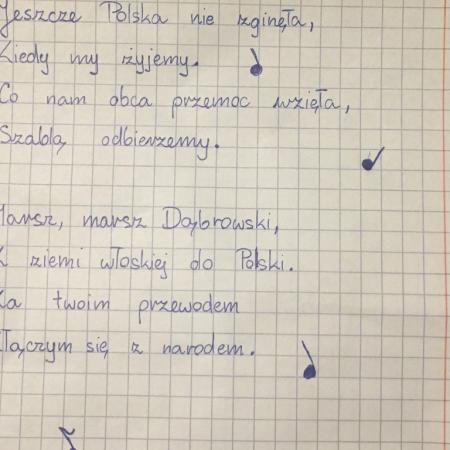 Jeszcze Polska nie zginęła,
Kiedy my żyjemy.
Co nam obca przemoc wzięła,
Szablą odbierzemy.
Marsz, marsz Dąbrowski,
Z ziemi włoskiej do Polski.
Za twoim przewodem
Złączym się z narodem.